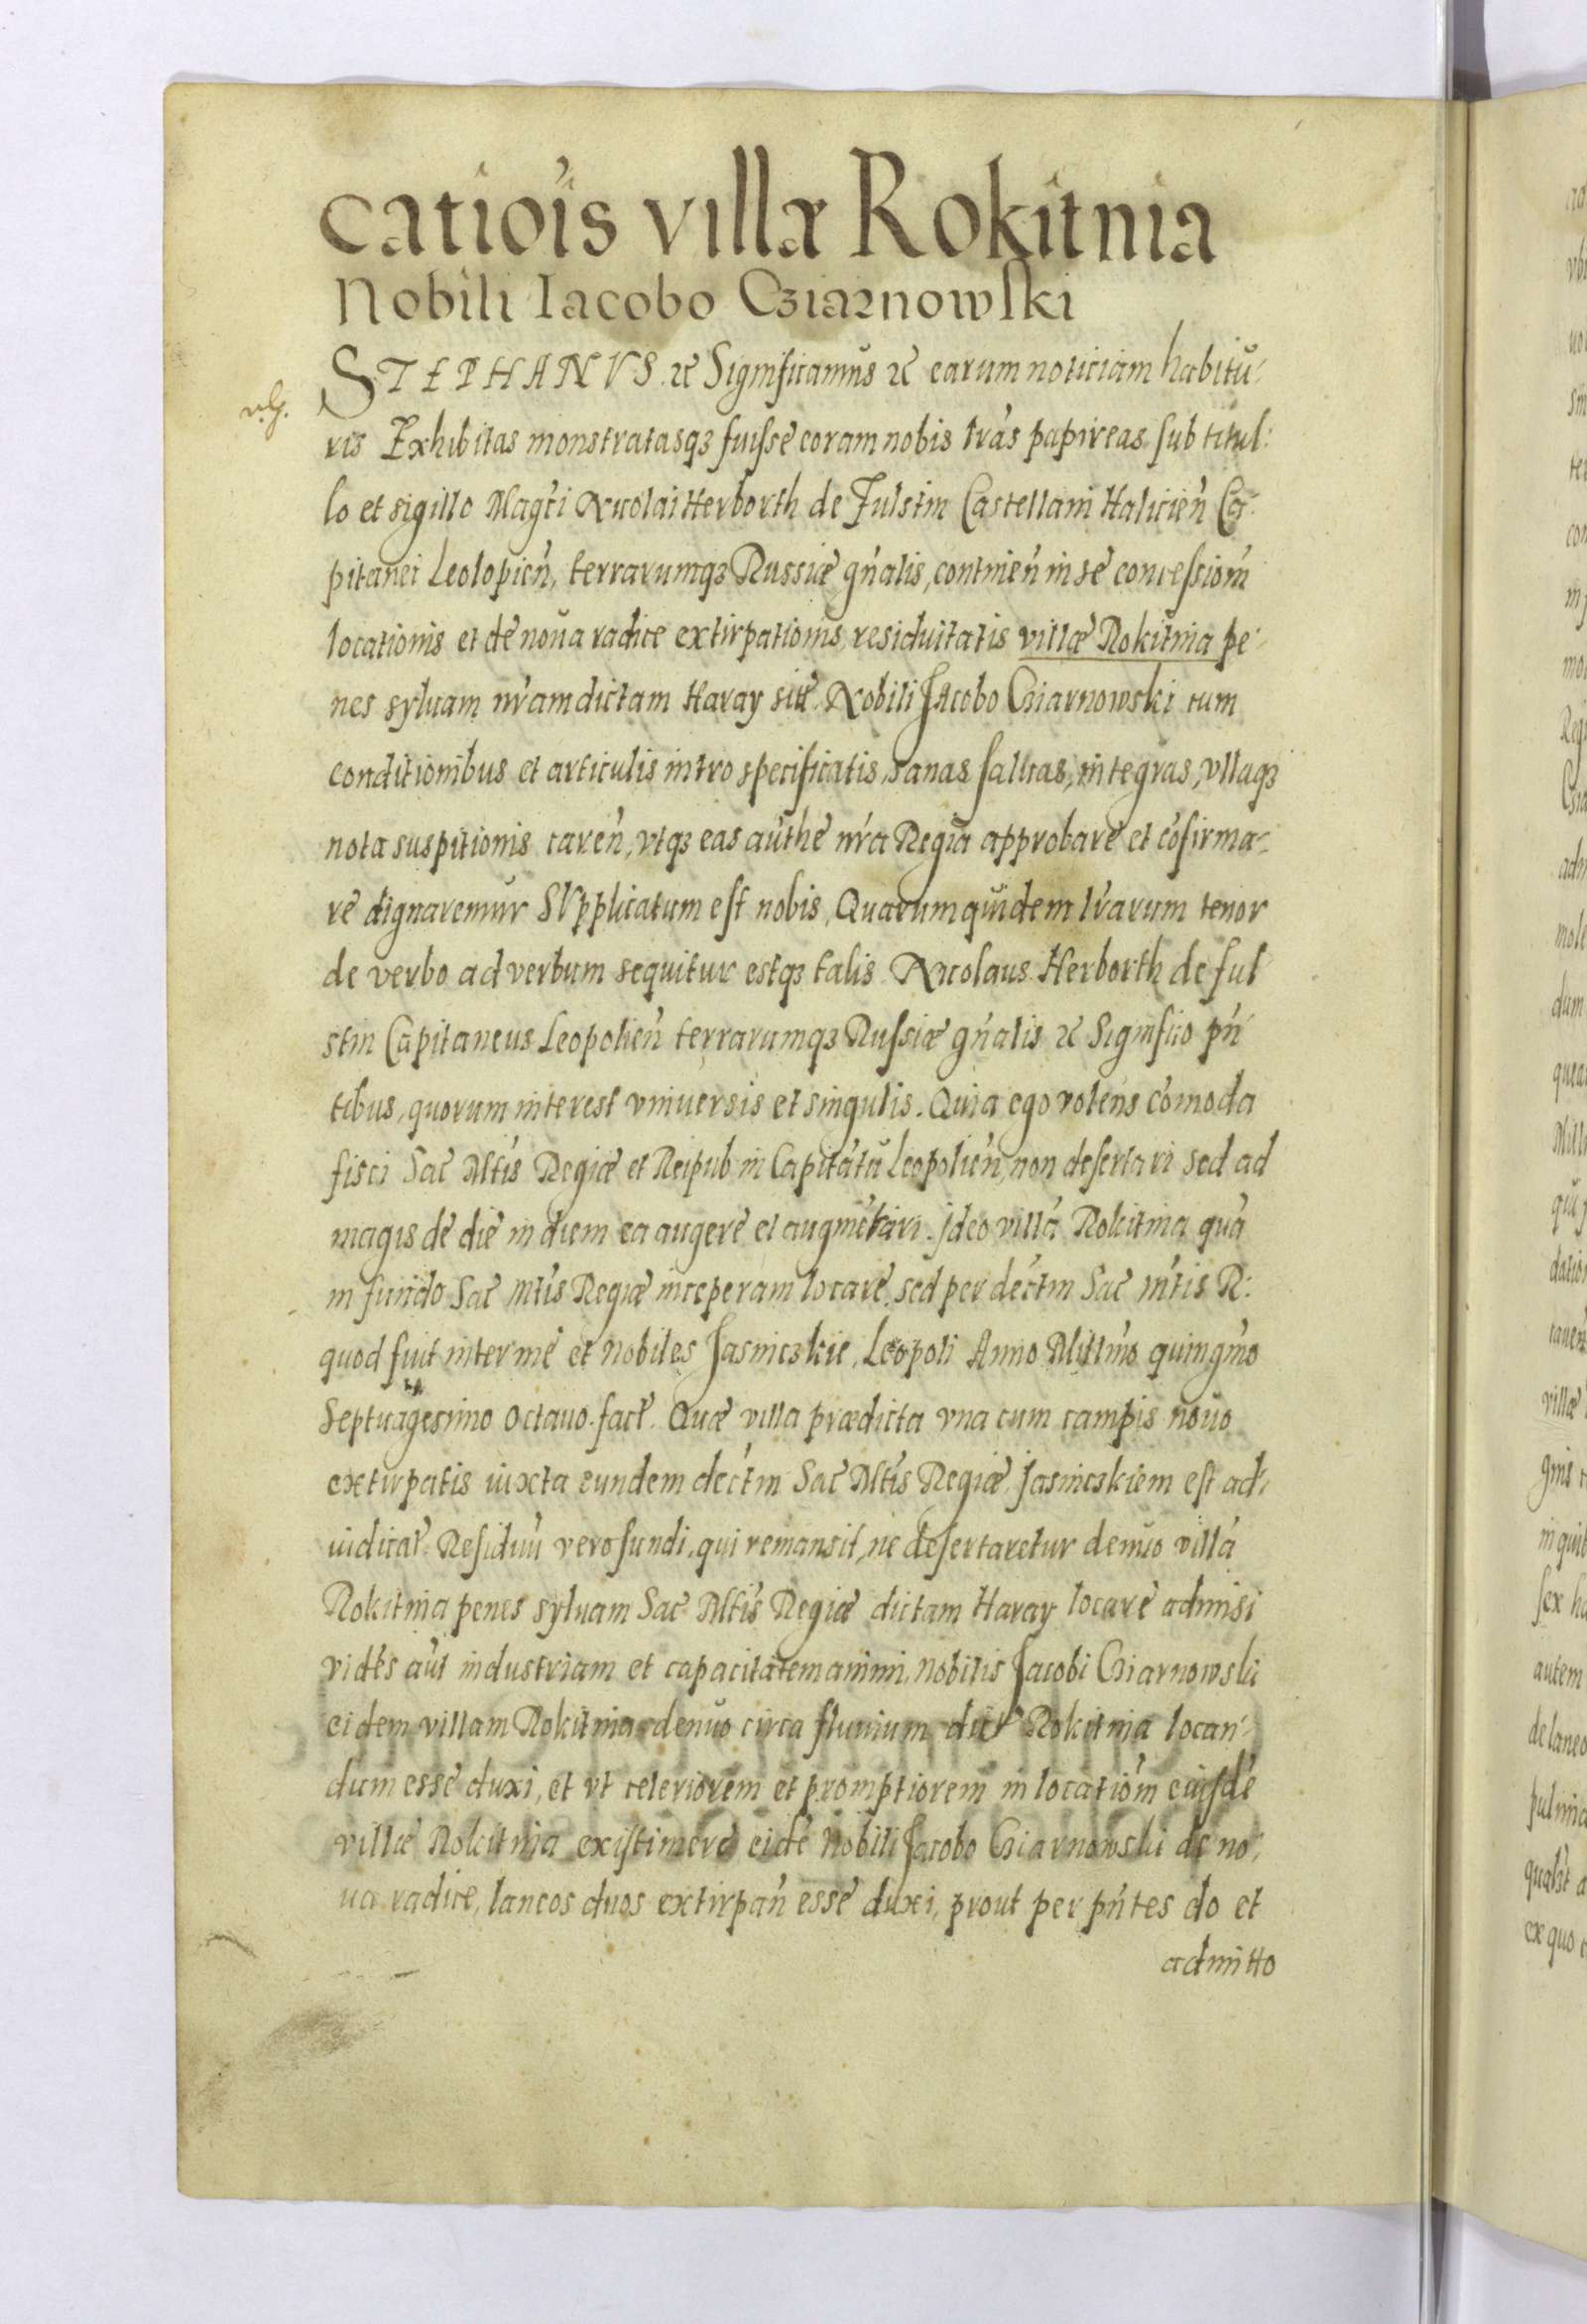 catiōis villæ Rokitnia
Nobili Iacobo Cziarnowski
STEPHANVS &c Significamus &c earum noticiam habitu-
ris Exhibitas monstratasqz fuisse coram nobis lras papireas sub titul:
lo et sigillo Magci Nicolai Herborth de Fulstin Castellani Halicien Ca-
pitanei Leolopien, terrarumqz Russiæ gnalis, continen in se concessiom
locationis et de noua radice extirpationis, residuitatis villæ Rokitnia pe-
nes syluam nram dictam Haray sitæ. Nobili Jacobo Cziarnowski cum
conditionibus et articulis intro specificatis, sanas saluas, integras, vllaqz
nota suspitionis caren, vtqz eas authe nra Regia approbare et cofirma-
re dignaremur SVpplicatum est nobis, Quarumquidem lrarum tenor
de verbo ad verbum sequitur estqz talis Nicolaus Herborth de ful
stin Capitaneus Leopolien terrarumqz Russiæ gnalis &c Significo pn
tibus, quorum interest vniuersis et singulis. Quia ego volens comoda
fisci Sac Mtis Regiæ et Reipub in Capitatu Leopolien, non desertari sed ad
magis de die in diem ea augere et augmetari. Ideo villa Rokitnia qua
in fundo Sac Mtis Regiæ inceperam locare, sed per dectm Sac Mtis R:
quod fuit inter me et nobiles Jasniczkie, Leopoli Anno Millmo quingmo
Septuagesimo octauo fact. Quæ villa prædicta vna cum campis nouo
extirpatis iuxta eundem dectm Sac Mtis Regiæ Jasniczkiem est ad-
iudicat. Residuu vero fundi, qui remansit, ne desertaretur denuo villa
Rokitnia penes syluam Sac Mtis Regiæ dictam Haray locare admisi
vides aut industriam et capacitatem animi, nobilis Jacobi Cziarnowski
eidem villam Rokitnia denuo circa fluuium dict Rokitnia locan-
dum esse duxi, et vt celeriorem et promptiorem in locatiom eiusde
villæ Rokitnia existimere eide Nobili Jacobo Cziarnowski de no-
ua radice, laneos duos extirpan esse duxi, prout per pntes do et
admitto